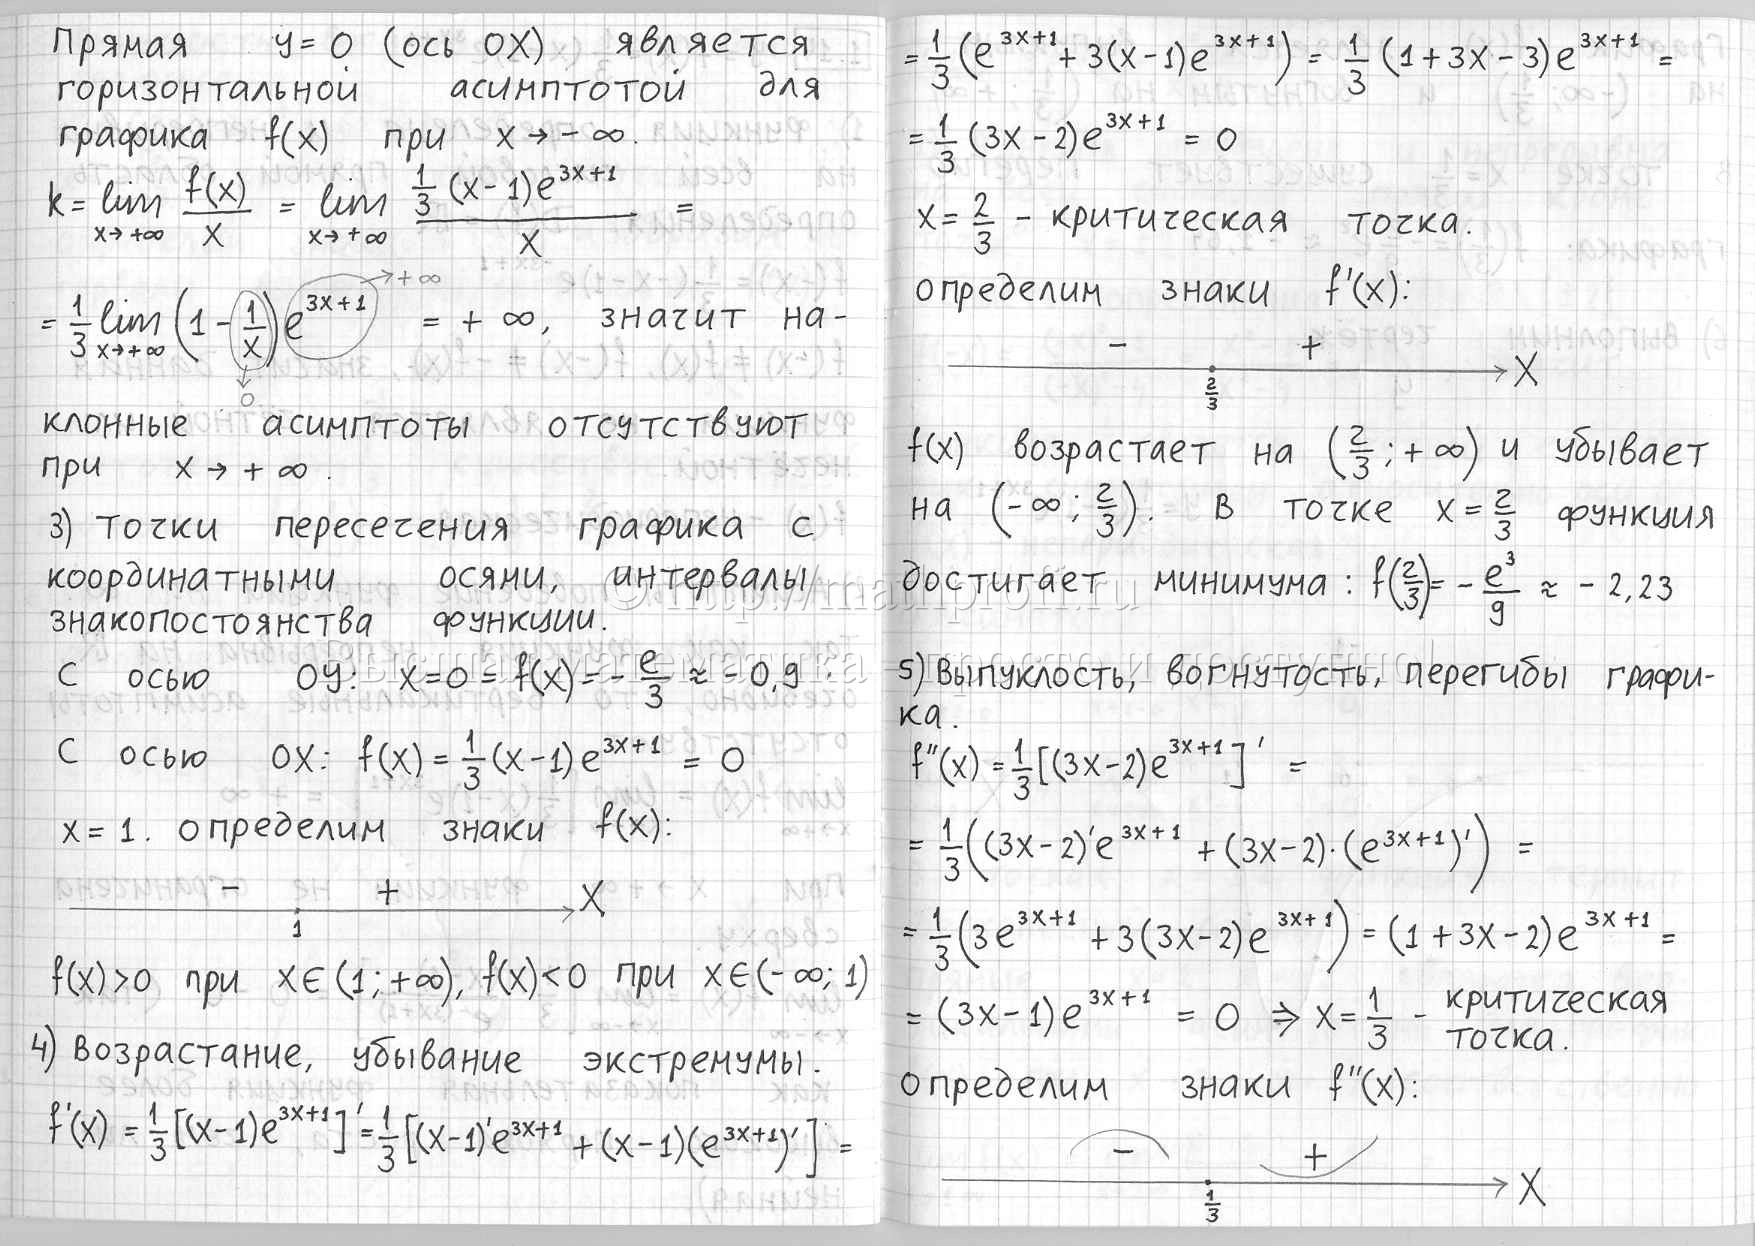 Прямая y = 0 (ось OX) является
горизонтальной асимптотой для
графика f(x) при x → - ∞.
k = lim x→+∞ f(x)/x = lim x→+∞ (1/3 (x-1)e^(3x+1))/x =
= 1/3 lim x→+∞ (1 - 1/x) e^(3x+1) = + ∞, значит на-
→ + ∞
0
клонные асимптоты отсутствуют
при x → + ∞.
3) Точки пересечения графика с
координатными осями, интервалы
знакопостоянства функции.
С осью OY: x = 0 = f(x) = - e/3 ≈ - 0,9
С осью OX: f(x) = 1/3 (x-1)e^(3x+1) = 0
x = 1. Определим знаки f(x):
- + X
1
f(x)>0 при x∈(1;+∞), f(x)<0 при x∈(-∞;1)
4) Возрастание, убывание экстремумы.
f'(x) = 1/3 [(x-1)e^(3x+1)]' = 1/3 [(x-1)'e^(3x+1) + (x-1)(e^(3x+1))'] =
= 1/3 (e^(3x+1) + 3(x-1)e^(3x+1)) = 1/3 (1+3x-3)e^(3x+1) =
= 1/3 (3x-2)e^(3x+1) = 0
x = 2/3 - критическая точка.
Определим знаки f'(x):
- + X
2/3
f(x) возрастает на (2/3 ; + ∞) и убывает
на (-∞ ; 2/3). В точке x = 2/3 функция
достигает минимума: f(2/3) = - e^3/9 ≈ - 2,23
5) Выпуклость, вогнутость, перегибы графи-
ка.
f''(x) = 1/3 [(3x-2)e^(3x+1)]' =
= 1/3 ((3x-2)'e^(3x+1) + (3x-2)·(e^(3x+1))') =
= 1/3 (3e^(3x+1) + 3(3x-2)e^(3x+1)) = (1+3x-2)e^(3x+1) =
= (3x-1)e^(3x+1) = 0 ⇒ x = 1/3 - критическая
точка.
Определим знаки f''(x):
- + X
1/3
© http://mathprofi.ru
Высшая математика – просто и доступно!